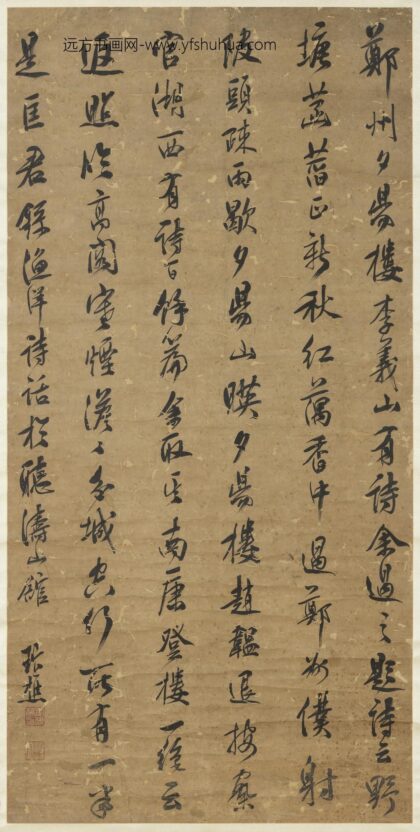 远方书画网-www.yfshuhua.com
鄭州夕昜樓李義山有詩余過之題詩云野
塘菡萏正新秋紅藕香中過鄭州僕射
陂頭疎雨歇夕昜山暎夕昜樓趙韞退按察
官湖西有詩百餘篇余取其南康登樓一絕云
返照臨高閣寒煙澹々城行一半
是巨君錄漁洋詩話於聽濤山館